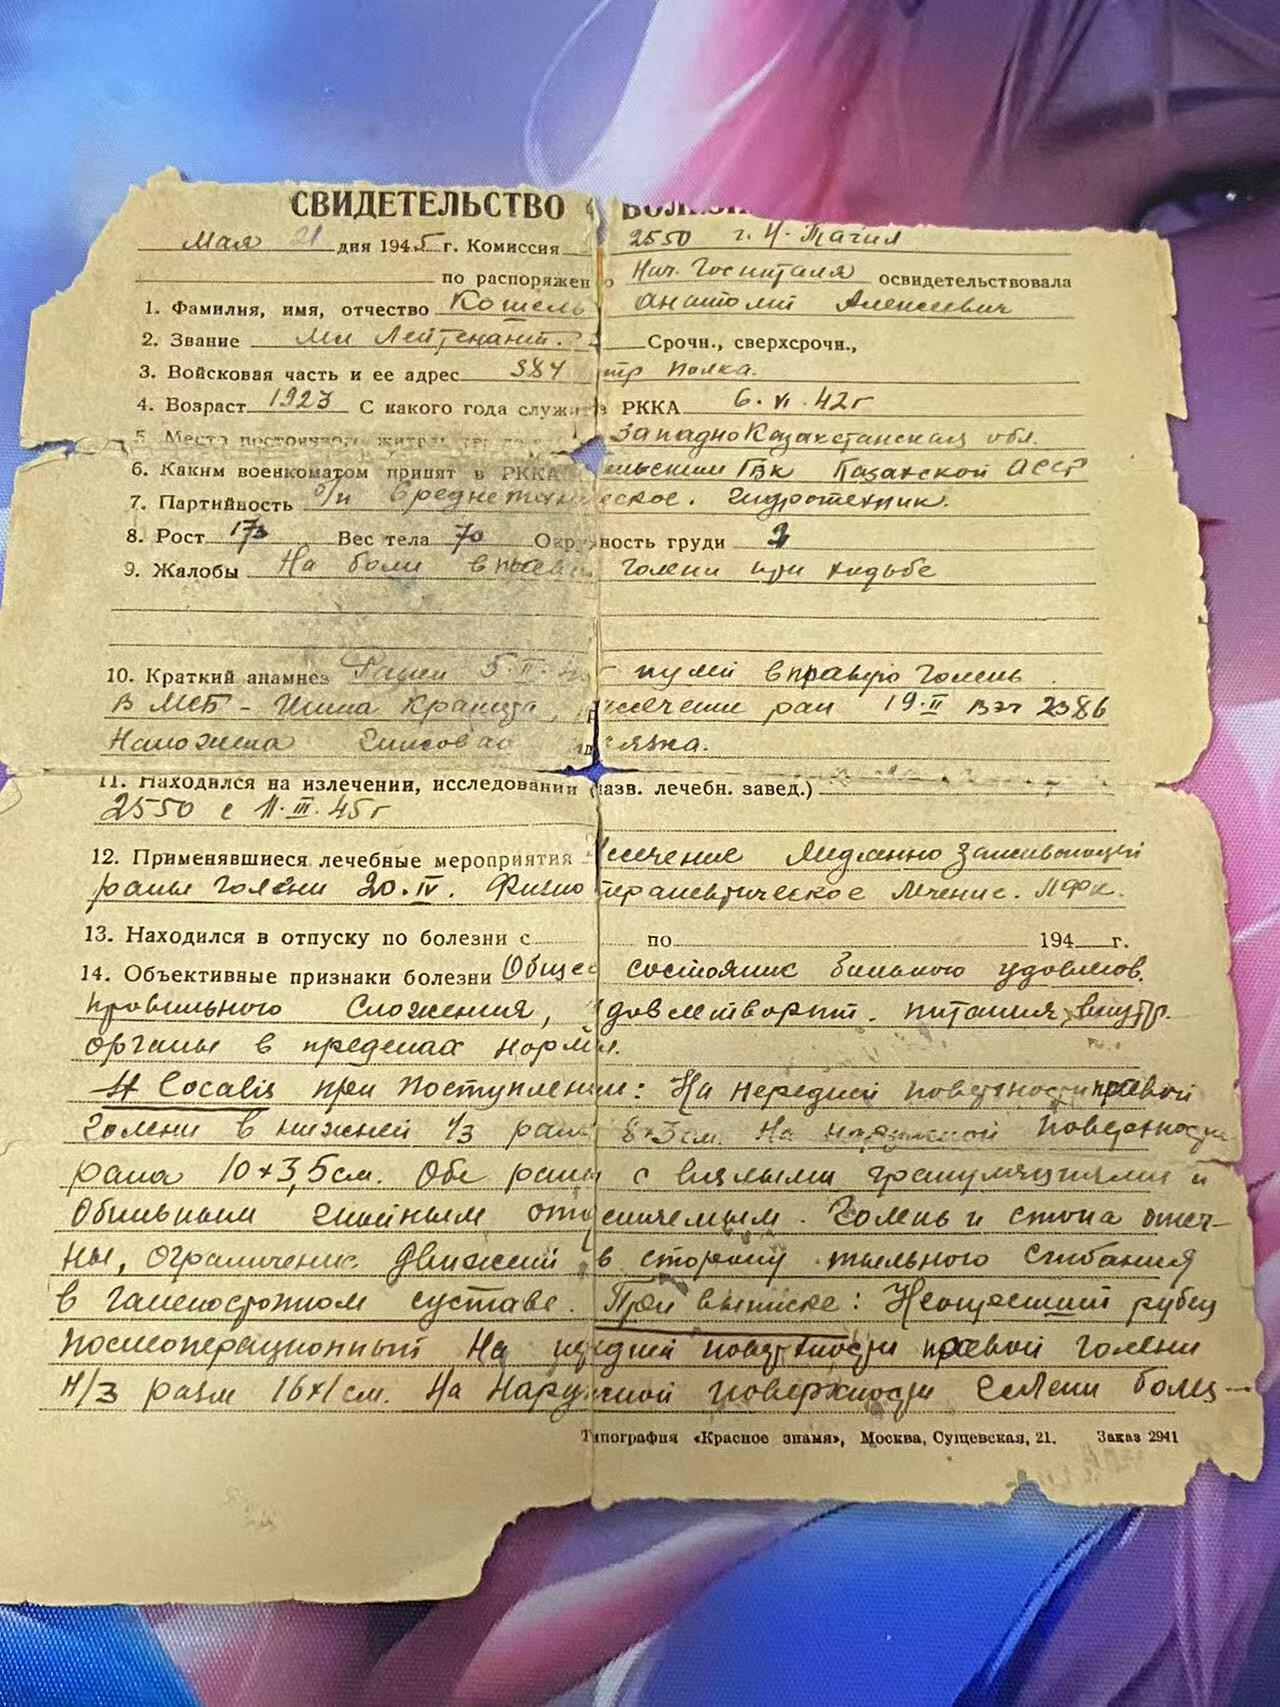 СВИДЕТЕЛЬСТВО
Мая 21 дня 1945 г. Комиссия 2550 г. Н. Тагил
по распоряжен Нач. Госпиталя освидетельствовала
1. Фамилия, имя, отчество Кошель Анатолий Алексеевич
2. Звание Мл Лейтенант. Срочн., сверхсрочн.,
3. Войсковая часть и ее адрес 384 стр полка.
4. Возраст 1923 С какого года служит в РККА 6. VI. 42 г
5. Место постоянного жительства Западно Казахстанская обл.
6. Каким военкоматом принят в РККА ГВК Казахской АССР
7. Партийность б/п Среднетехническое. гидротехник.
8. Рост 173 Вес тела 70 Окружность груди
9. Жалобы На боли в правой голени при ходьбе
10. Краткий анамнез Ранен 5. II. пулей в правую голень.
В МСБ - Шина Крамера, рассечение ран 19. II в эг 2386
Наложена гипсовая повязка.
11. Находился на излечении, исследовании (назв. лечебн. завед.)
2550 с 11. III. 45 г
12. Применявшиеся лечебные мероприятия Иссечение медленно заживающей
раны голени 20. IV. Физиотерапевтическое лечение. ЛФК.
13. Находился в отпуску по болезни с по 194 г.
14. Объективные признаки болезни Общее состояние больного удовлетв.
правильного сложения, удовлетворит. питания, внутр.
органы в пределах нормы.
St localis при поступлении: На передней поверхности правой
голени в нижней 1/3 рана 8×3 см. На наружной поверхности
рана 10×3,5 см. Обе раны с вялыми грануляциями и
обильным гнойным отделяемым. Голень и стопа отеч-
ны, ограничение движений в сторону тыльного сгибания
в голеностопном суставе. При выписке: Неокрепший рубец
послеоперационный на передней поверхности правой голени
н/3 разм 16×1 см. На наружной поверхности голени болез-
Типография «Красное знамя», Москва, Сущевская, 21. Заказ 2941